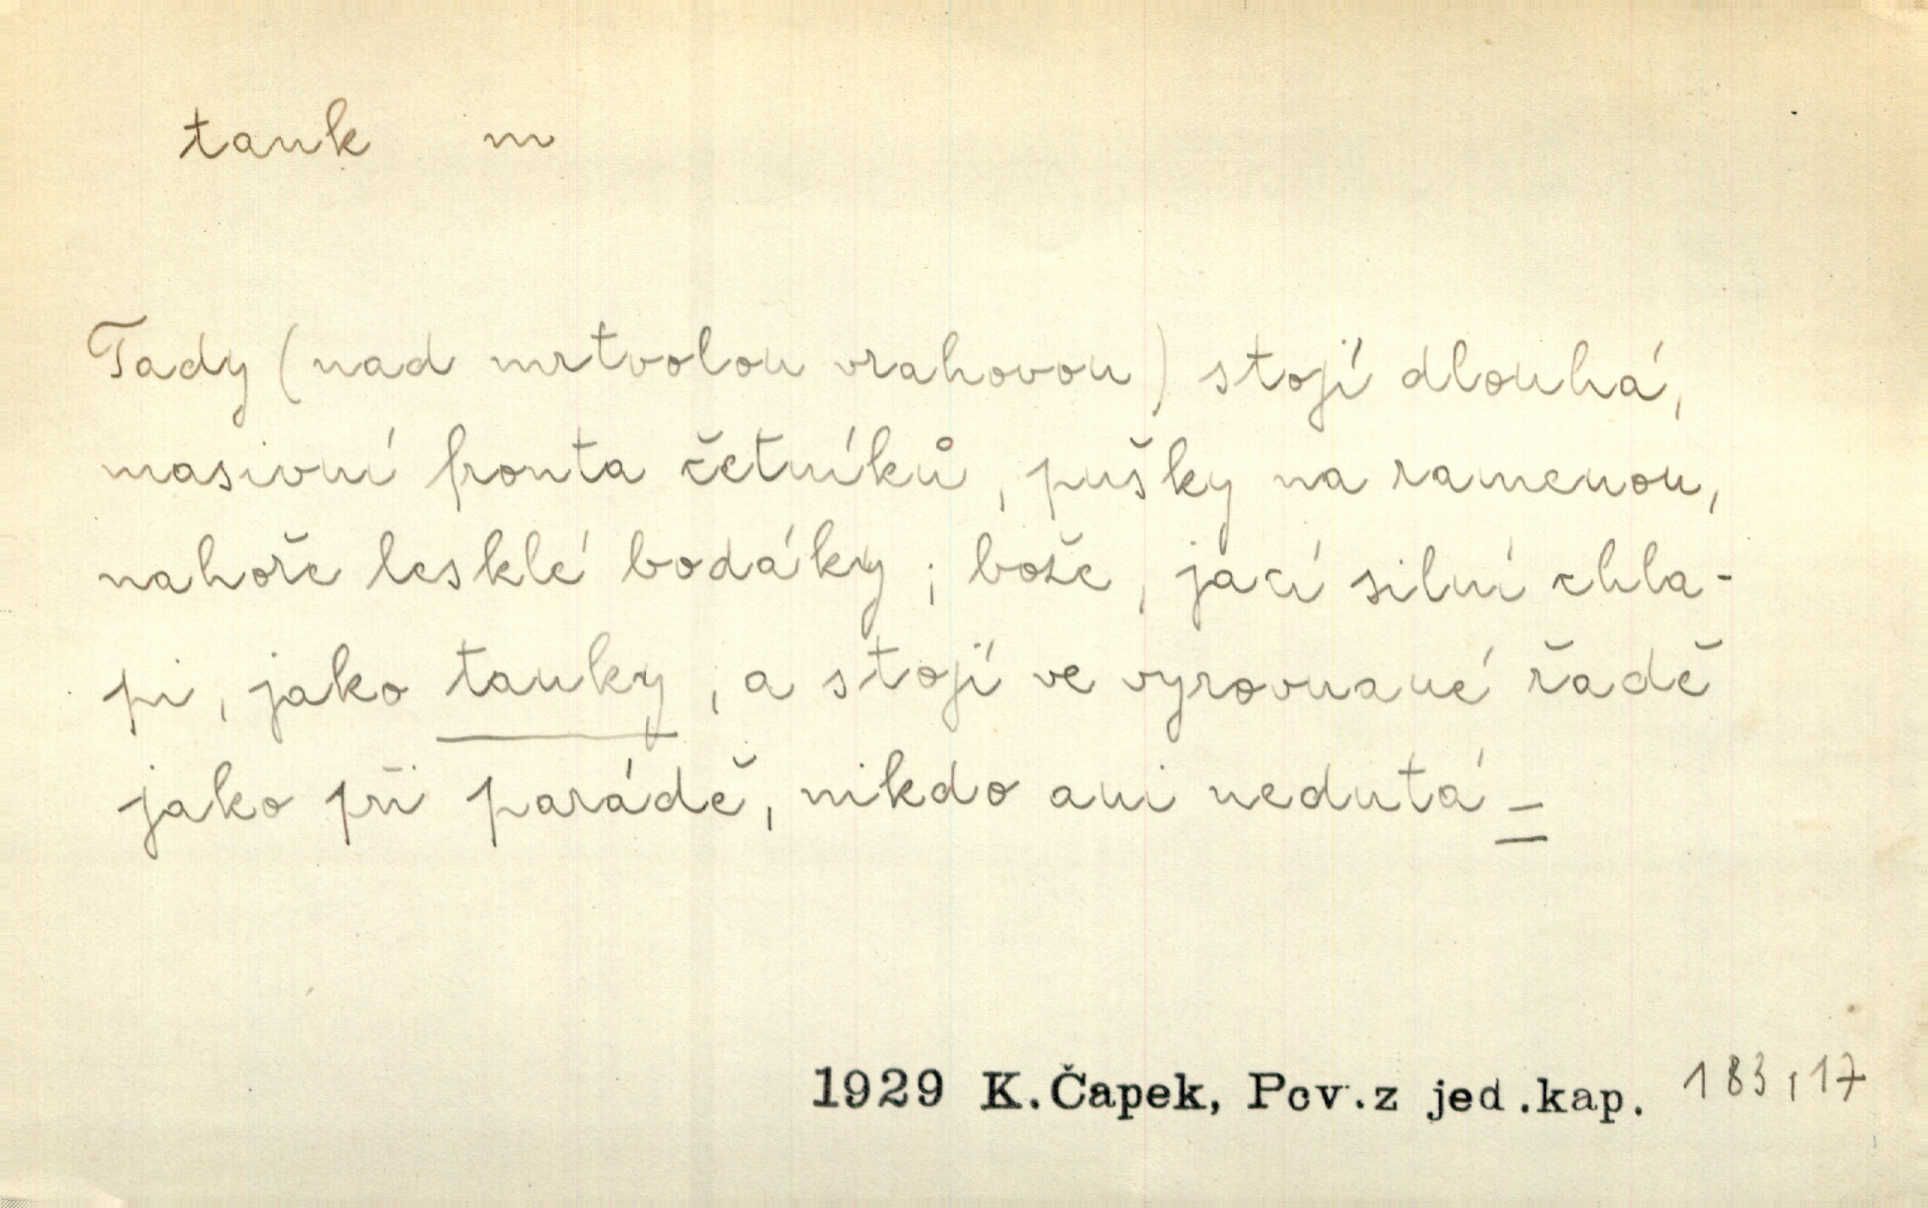 tank m
Tady (nad mrtvolou vrahovou) stojí dlouhá,
masivní fronta četníků, pušky na ramenou,
nahoře lesklé bodáky; bože, jací silní chla-
pi, jako tanky, a stojí ve vyrovnané řadě
jako při parádě, nikdo ani nedutá =
1929 K. Čapek, Pov. z jed. kap. 183,17